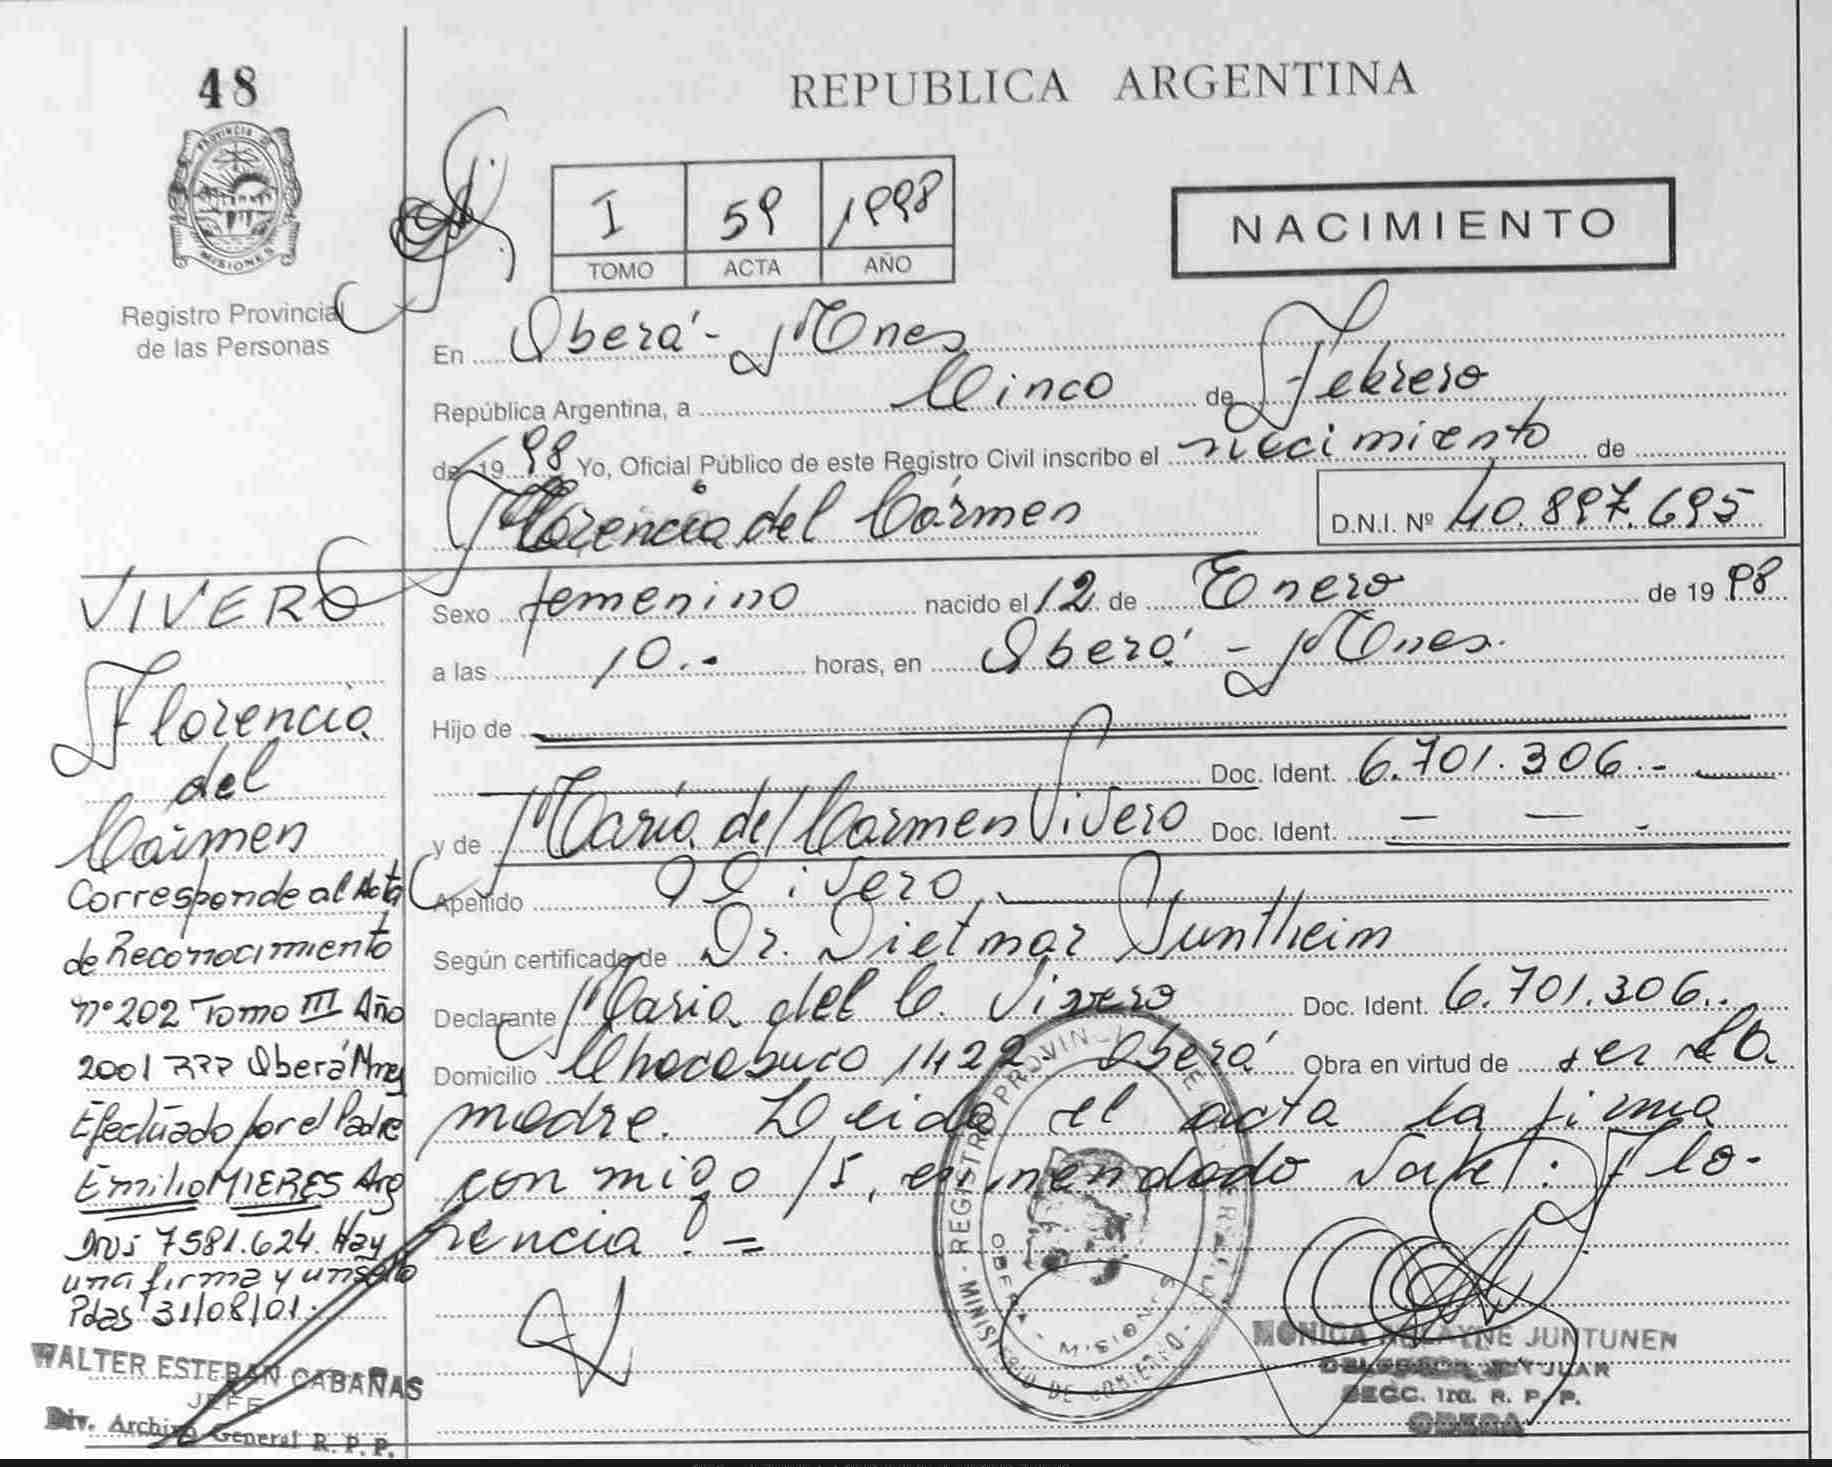 48
REPUBLICA ARGENTINA
PROVINCIA DE
MISIONES
Registro Provincial
de las Personas
I 59 1998
TOMO ACTA AÑO
NACIMIENTO
En Oberá - Mnes
República Argentina, a Cinco de Febrero
de 1998 Yo, Oficial Público de este Registro Civil inscribo el nacimiento de
Florencia del Cármen D.N.I. Nº 40.897.695
Sexo femenino nacido el 12 de Enero de 1998
a las 10.- horas, en Oberá - Mnes.
Hijo de
Doc. Ident. 6.701.306.-
y de María del Carmen Vivero Doc. Ident. — — -
Apellido Vivero
Según certificado de Dr. Dietmar Suntheim
Declarante María del C. Vivero Doc. Ident. 6.701.306.
Domicilio Chacabuco 1422 - Oberá Obra en virtud de ser la
madre. Leida el acta la firma
conmigo /5, enmendado vale: Flo-
rencia. =
VIVERO
Florencia
del
Cármen
Corresponde al Acta
de Reconocimiento
nº 202 Tomo III Año
2001 Oberá Mnes
Efectuado por el Padre
Emilio MIERES Arg
DNI 7581.624. Hay
una firma y un sello
Pdas 31/08/01.
WALTER ESTEBAN CABAÑAS
JEFE
Div. Archivo General R. P. P.
REGISTRO PROVINCIAL DE
MINISTERIO DE GOBIERNO
OBERA - MISIONES
MONICA JUNTUNEN
SECC. R. P. P.
OBERA